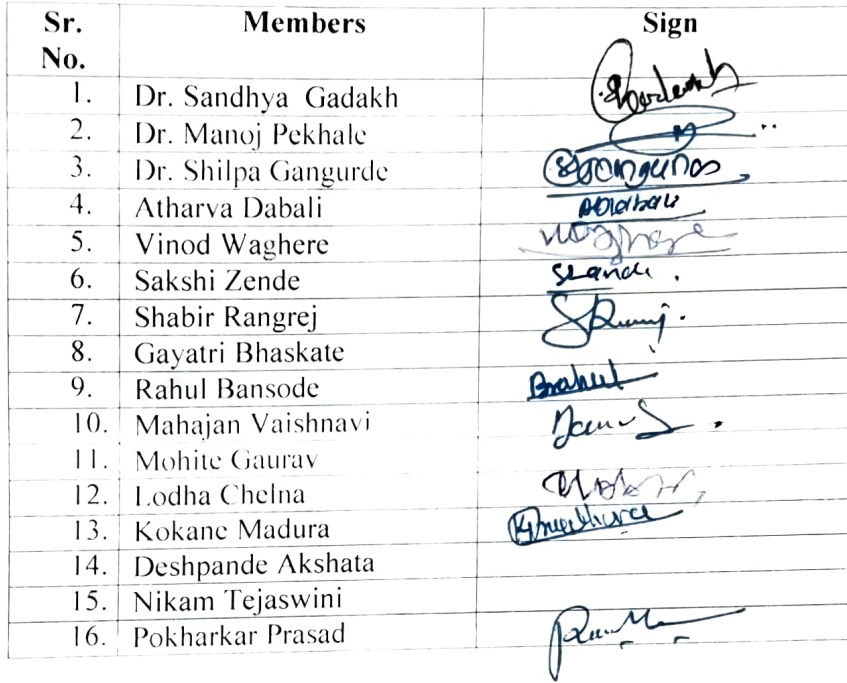 Sr. No. Members Sign
1. Dr. Sandhya Gadakh
2. Dr. Manoj Pekhale
3. Dr. Shilpa Gangurde
4. Atharva Dabali
5. Vinod Waghere
6. Sakshi Zende
7. Shabir Rangrej
8. Gayatri Bhaskate
9. Rahul Bansode
10. Mahajan Vaishnavi
11. Mohite Gaurav
12. Lodha Chelna
13. Kokane Madura
14. Deshpande Akshata
15. Nikam Tejaswini
16. Pokharkar Prasad